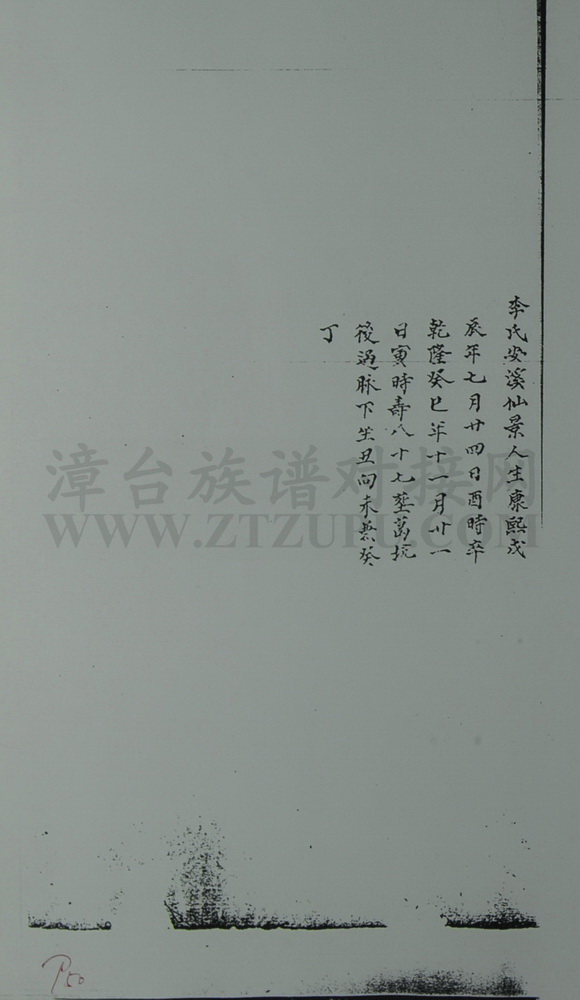 李氏安溪仙景人生康熙戊
辰年七月廿四日酉時卒
乾隆癸巳年十一月廿一
日寅時壽八十七塟萬坑
後過脉下坐丑向未兼癸
丁
漳台族谱对接网
WWW.ZTZUPU.COM
P50